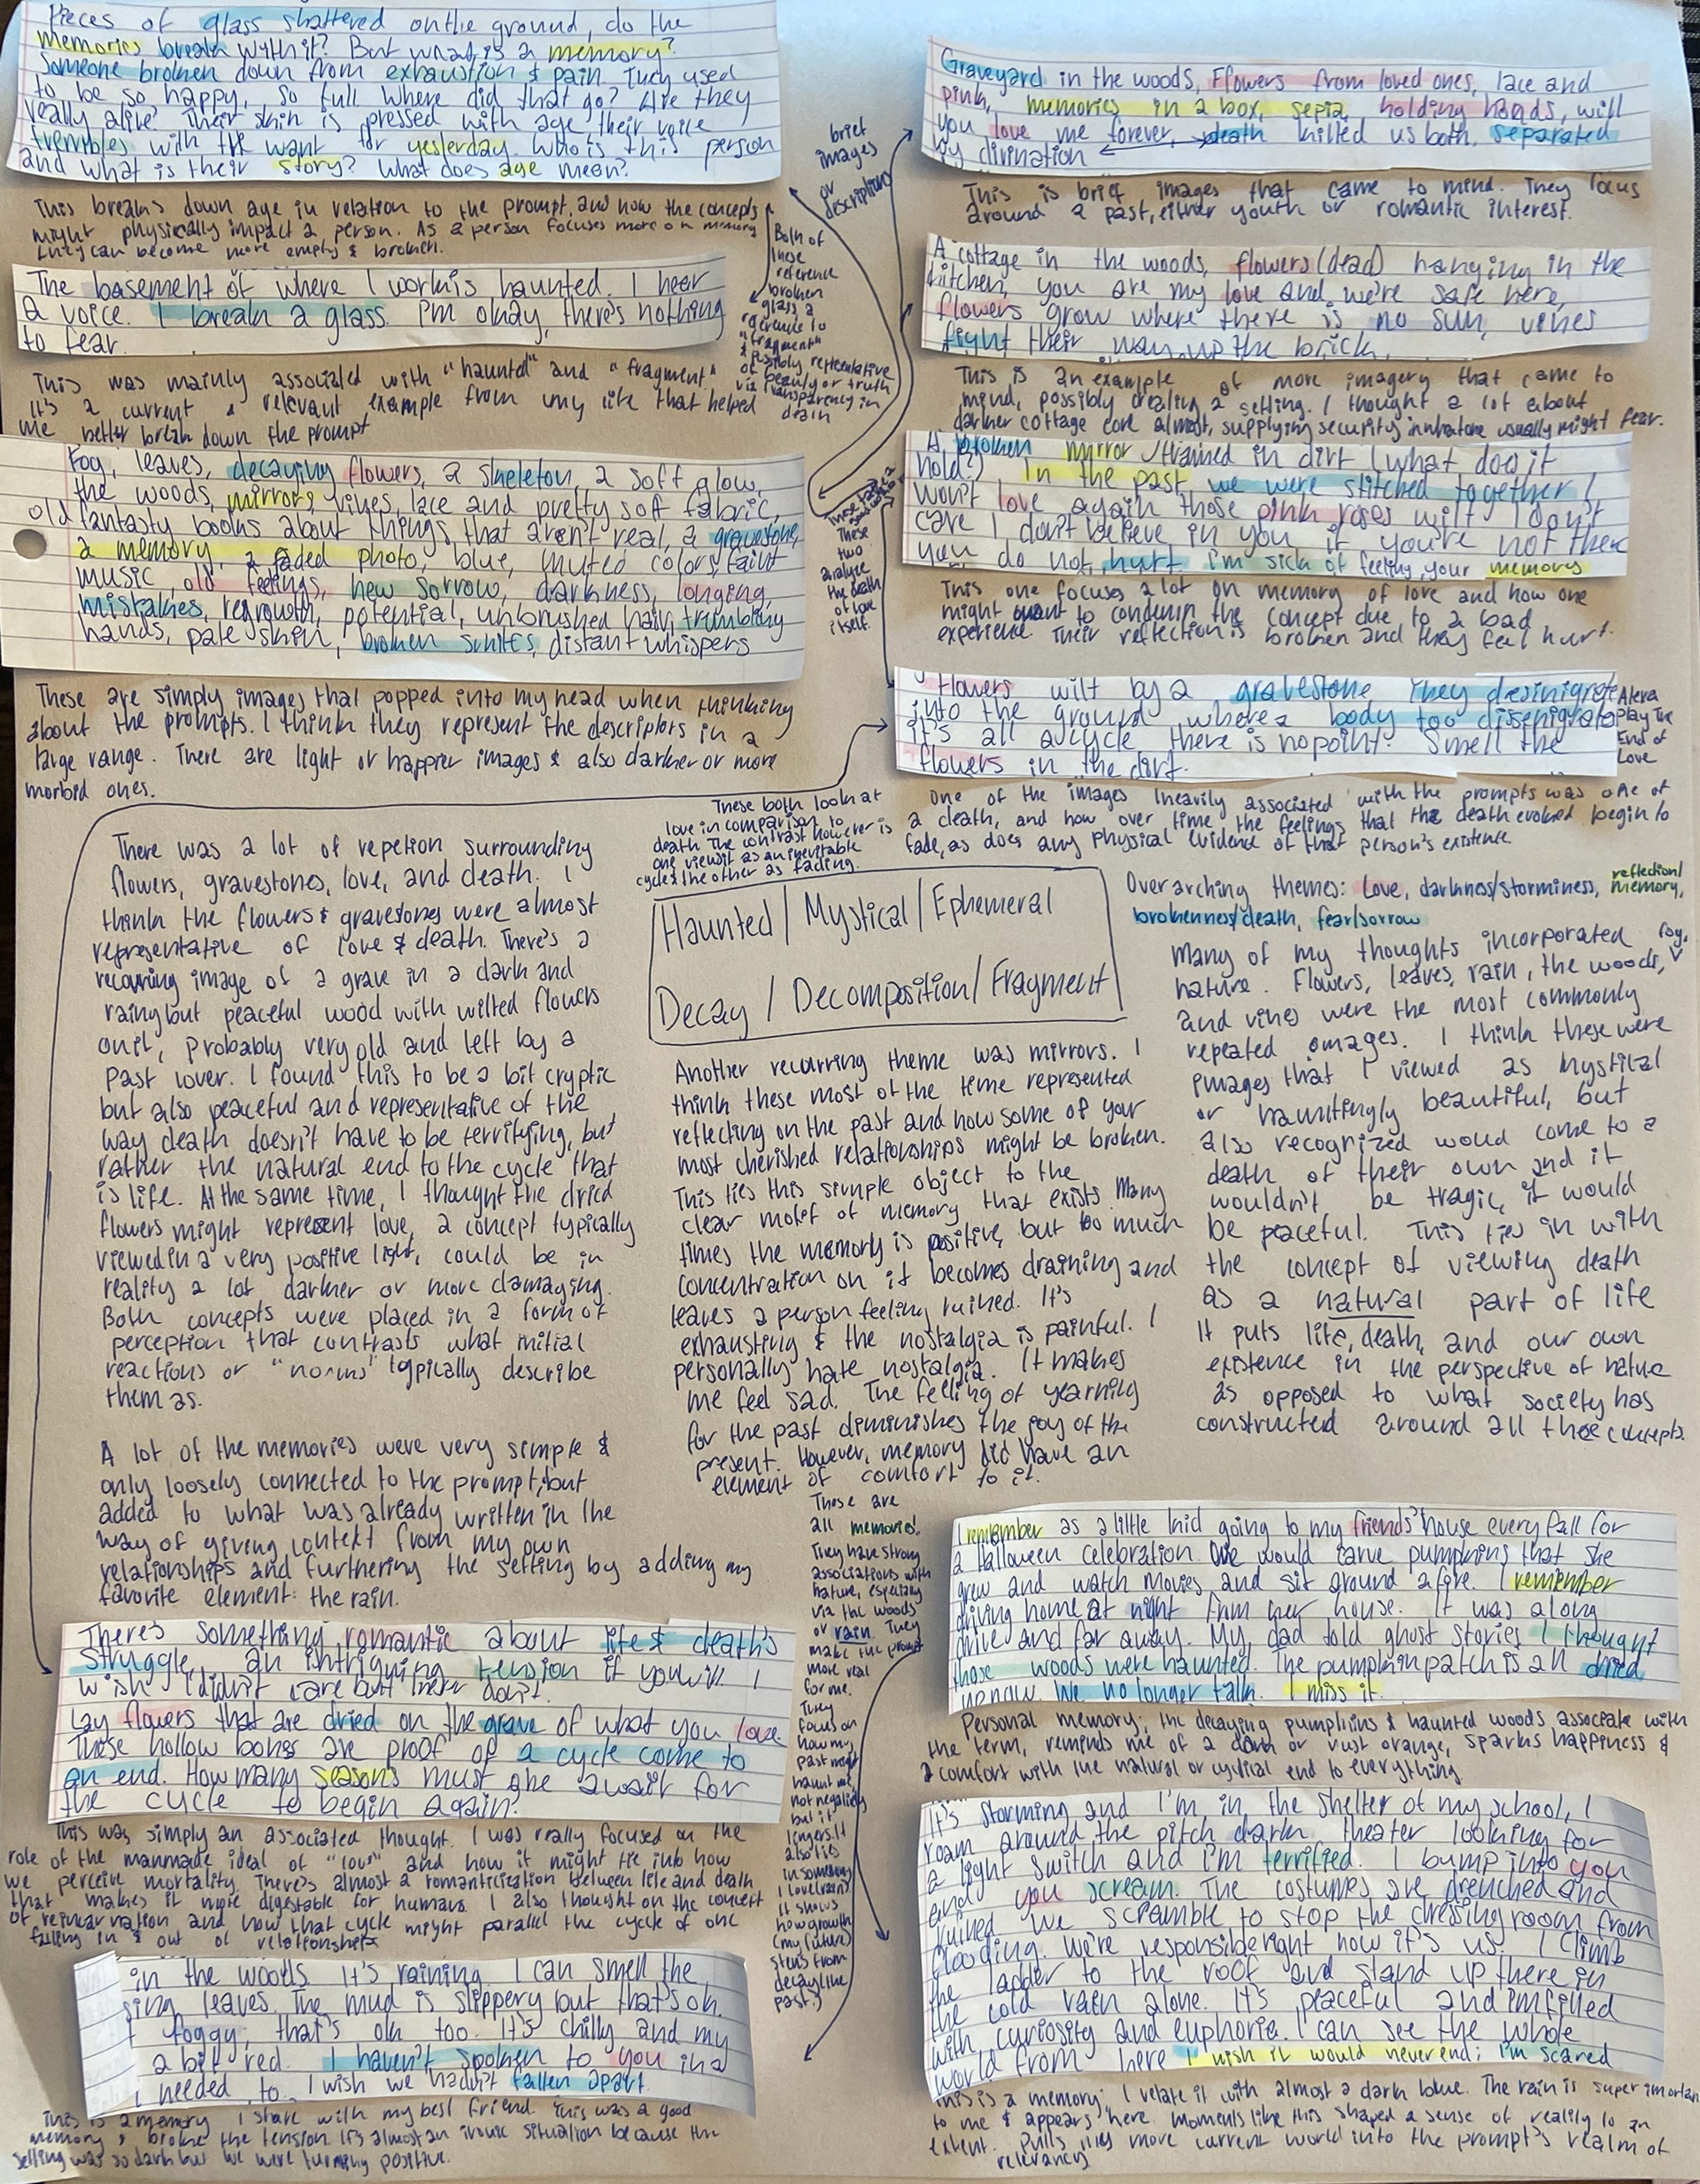 Pieces of glass shattered on the ground, do the
memories break with it? But what is a memory?
Someone broken down from exhaustion & pain. They used
to be so happy, so full where did that go? Are they
really alive? Their skin is pressed with age their voice
trembles with the want for yesterday who is this person
and what is their story? What does age mean?
This breaks down age in relation to the prompt, and how the concepts
might physically impact a person. As a person focuses more on memory
they can become more empty & broken.
The basement of where I work is haunted. I hear
a voice. I break a glass. I'm okay, there's nothing
to fear.
This was mainly associated with "haunted" and "fragment"
It's a current & relevant example from my life that helped
me better break down the prompt
Both of
these
reference
broken
glass a
reference to
"fragment"
& possibly representative
of beauty or truth
via transparency in
Fog, leaves, decaying flowers, a skeleton, a soft glow,
the woods, mirrors, vines, lace and pretty soft fabric,
old fantasty books about things that aren't real, a gravestone,
a memory, a faded photo, blue, muted colors, faint
music, old feelings, new sorrow, darkness, longing,
mistakes, regrowth, potential, unbrushed hair, trembling
hands, pale skin, broken smiles, distant whispers
These are simply images that popped into my head when thinking
about the prompts. I think they represent the descriptors in a
large range. There are light or happier images & also darker or more
morbid ones.
brief
images
or
descriptions
Graveyard in the woods, Flowers from loved ones, lace and
pink, memories in a box, sepia, holding hands, will
you love me forever, death killed us both, separated
by divination
This is brief images that came to mind. They focus
around a past, either youth or romantic interest.
A cottage in the woods, flowers (dead) hanging in the
kitchen, you are my love and we're safe here,
flowers grow where there is no sun, vines
fight their way up the brick.
This is an example of more imagery that came to
mind, possibly creating a setting. I thought a lot about
darker cottage core almost, supplying security in what one usually might fear.
A broken mirror framed in dirt (what does it
hold?) In the past we were stitched together I
won't love again those pink roses wilt I don't
care I don't believe in you if you're not there
you do not hurt i'm sick of feeling your memory
This one focuses a lot on memory of love and how one
might want to condemn the concept due to a bad
experience. Their reflection is broken and they feel hurt.
These
two
analyze
the death
of love
itself.
Flowers wilt by a gravestone they desinigrate
into the ground where a body too dissenigrates
it's all a cycle there is no point. Smell the
flowers in the dirt.
Alexa
play The
End of
Love
One of the images heavily associated with the prompts was one of
a death, and how over time the feelings that the death evoked begin to
fade, as does any physical evidence of that person's existence
These both look at
love in comparison to
death The contrast however is
one views it as an inevitable
cycle & the other as fading.
There was a lot of repetion surrounding
flowers, gravestones, love, and death. I
think the flowers & gravestones were almost
representative of love & death. There's a
recurring image of a grave in a dark and
rainy but peaceful wood with wilted flowers
on it, probably very old and left by a
past lover. I found this to be a bit cryptic
but also peaceful and representative of the
way death doesn't have to be terrifying, but
rather the natural end to the cycle that
is life. At the same time, I thought the dried
flowers might represent love, a concept typically
viewed in a very positive light, could be in
reality a lot darker or more damaging.
Both concepts were placed in a form of
perception that contrasts what initial
reactions or "norms" typically describe
them as.
A lot of the memories were very simple &
only loosely connected to the prompt, but
added to what was already written in the
way of giving context from my own
relationships and furthering the setting by adding my
favorite element: the rain.
Haunted / Mystical / Ephemeral
Decay / Decomposition / Fragment
Another recurring theme was mirrors. I
think these most of the time represented
reflecting on the past and how some of your
most cherished relationships might be broken.
This ties this simple object to the
clear motif of memory that exists. Many
times the memory is positive, but too much
concentration on it becomes draining and
leaves a person feeling ruined. It's
exhausting & the nostalgia is painful. I
personally hate nostalgia. It makes
me feel sad. The feeling of yearning
for the past diminishes the joy of the
present. However, memory did have an
element of comfort to it.
Overarching themes: Love, darkness/storminess, reflection/
memory,
brokenness/death, fear/sorrow
Many of my thoughts incorporated
nature. Flowers, leaves, rain, the woods, fog,
and vines were the most commonly
repeated omages. I think these were
images that I viewed as mystical
or hauntingly beautiful, but
also recognized would come to a
death of their own and it
wouldn't be tragic, it would
be peaceful. This ties in with
the concept of viewing death
as a natural part of life
It puts life, death, and our own
existence in the perspective of nature
as opposed to what society has
constructed around all these concepts.
These are
all memories.
They have strong
associations with
nature, especially
via the woods
or rain. They
make the prompt
more real
for me.
They
focus on
how my
past might
haunt me,
not negatively
but it
lingers. It
also ties
in something
I love (rain)
It shows
how growth
(my future)
stems from
decay (the
past.)
I remember as a little kid going to my friends' house every fall for
a Halloween celebration. We would carve pumpkins that she
grew and watch movies and sit around a fire. I remember
driving home at night from her house. It was a long
drive and far away. My dad told ghost stories I thought
those woods were haunted. The pumpkin patch is all dried
up now. We no longer talk. I miss it.
Personal memory; the decaying pumpkins & haunted woods associate with
the term, reminds me of a dark or rust orange, sparks happiness &
comfort with the natural or cyclical end to everything
There's something romantic about life & death's
struggle, an intriguing tension if you will I
wish I didn't care but I
Lay flowers that are dried on the grave of what you love
Those hollow bones are proof of a cycle come to
an end. How many seasons must she await for
the cycle to begin again?
This was simply an associated thought. I was really focused on the
role of the manmade ideal of "love" and how it might tie into how
we perceive mortality. There's almost a romanticization between life and death
that makes it more digestable for humans. I also thought on the concept
of reincarnation and how that cycle might parallel the cycle of one
falling in & out of relationships
in the woods. It's raining. I can smell the
leaves. The mud is slippery but that's ok.
foggy; that's ok too. It's chilly and my
a bit red. I haven't spoken to you in a
I needed to. I wish we hadn't fallen apart
This is a memory I share with my best friend. This was a good
memory & broke the tension. It's almost an ironic situation because the
setting was so dark but we were turning positive.
It's storming and I'm in the shelter of my school, I
roam around the pitch dark theater looking for
a light switch and i'm terrified. I bump into you
and you scream. The costumes are drenched and
ruined we scramble to stop the dressing room from
flooding. We're responsible right now it's us. I climb
the ladder to the roof and stand up there in
the cold rain alone. It's peaceful and im filled
with curiosity and euphoria. I can see the whole
world from here I wish it would never end; i'm scared
This is a memory; I relate it with almost a dark blue. The rain is super important
to me & appears here. Moments like this shaped a sense of reality to an
extent. Pulls my more current world into the prompt's realm of
relevancy